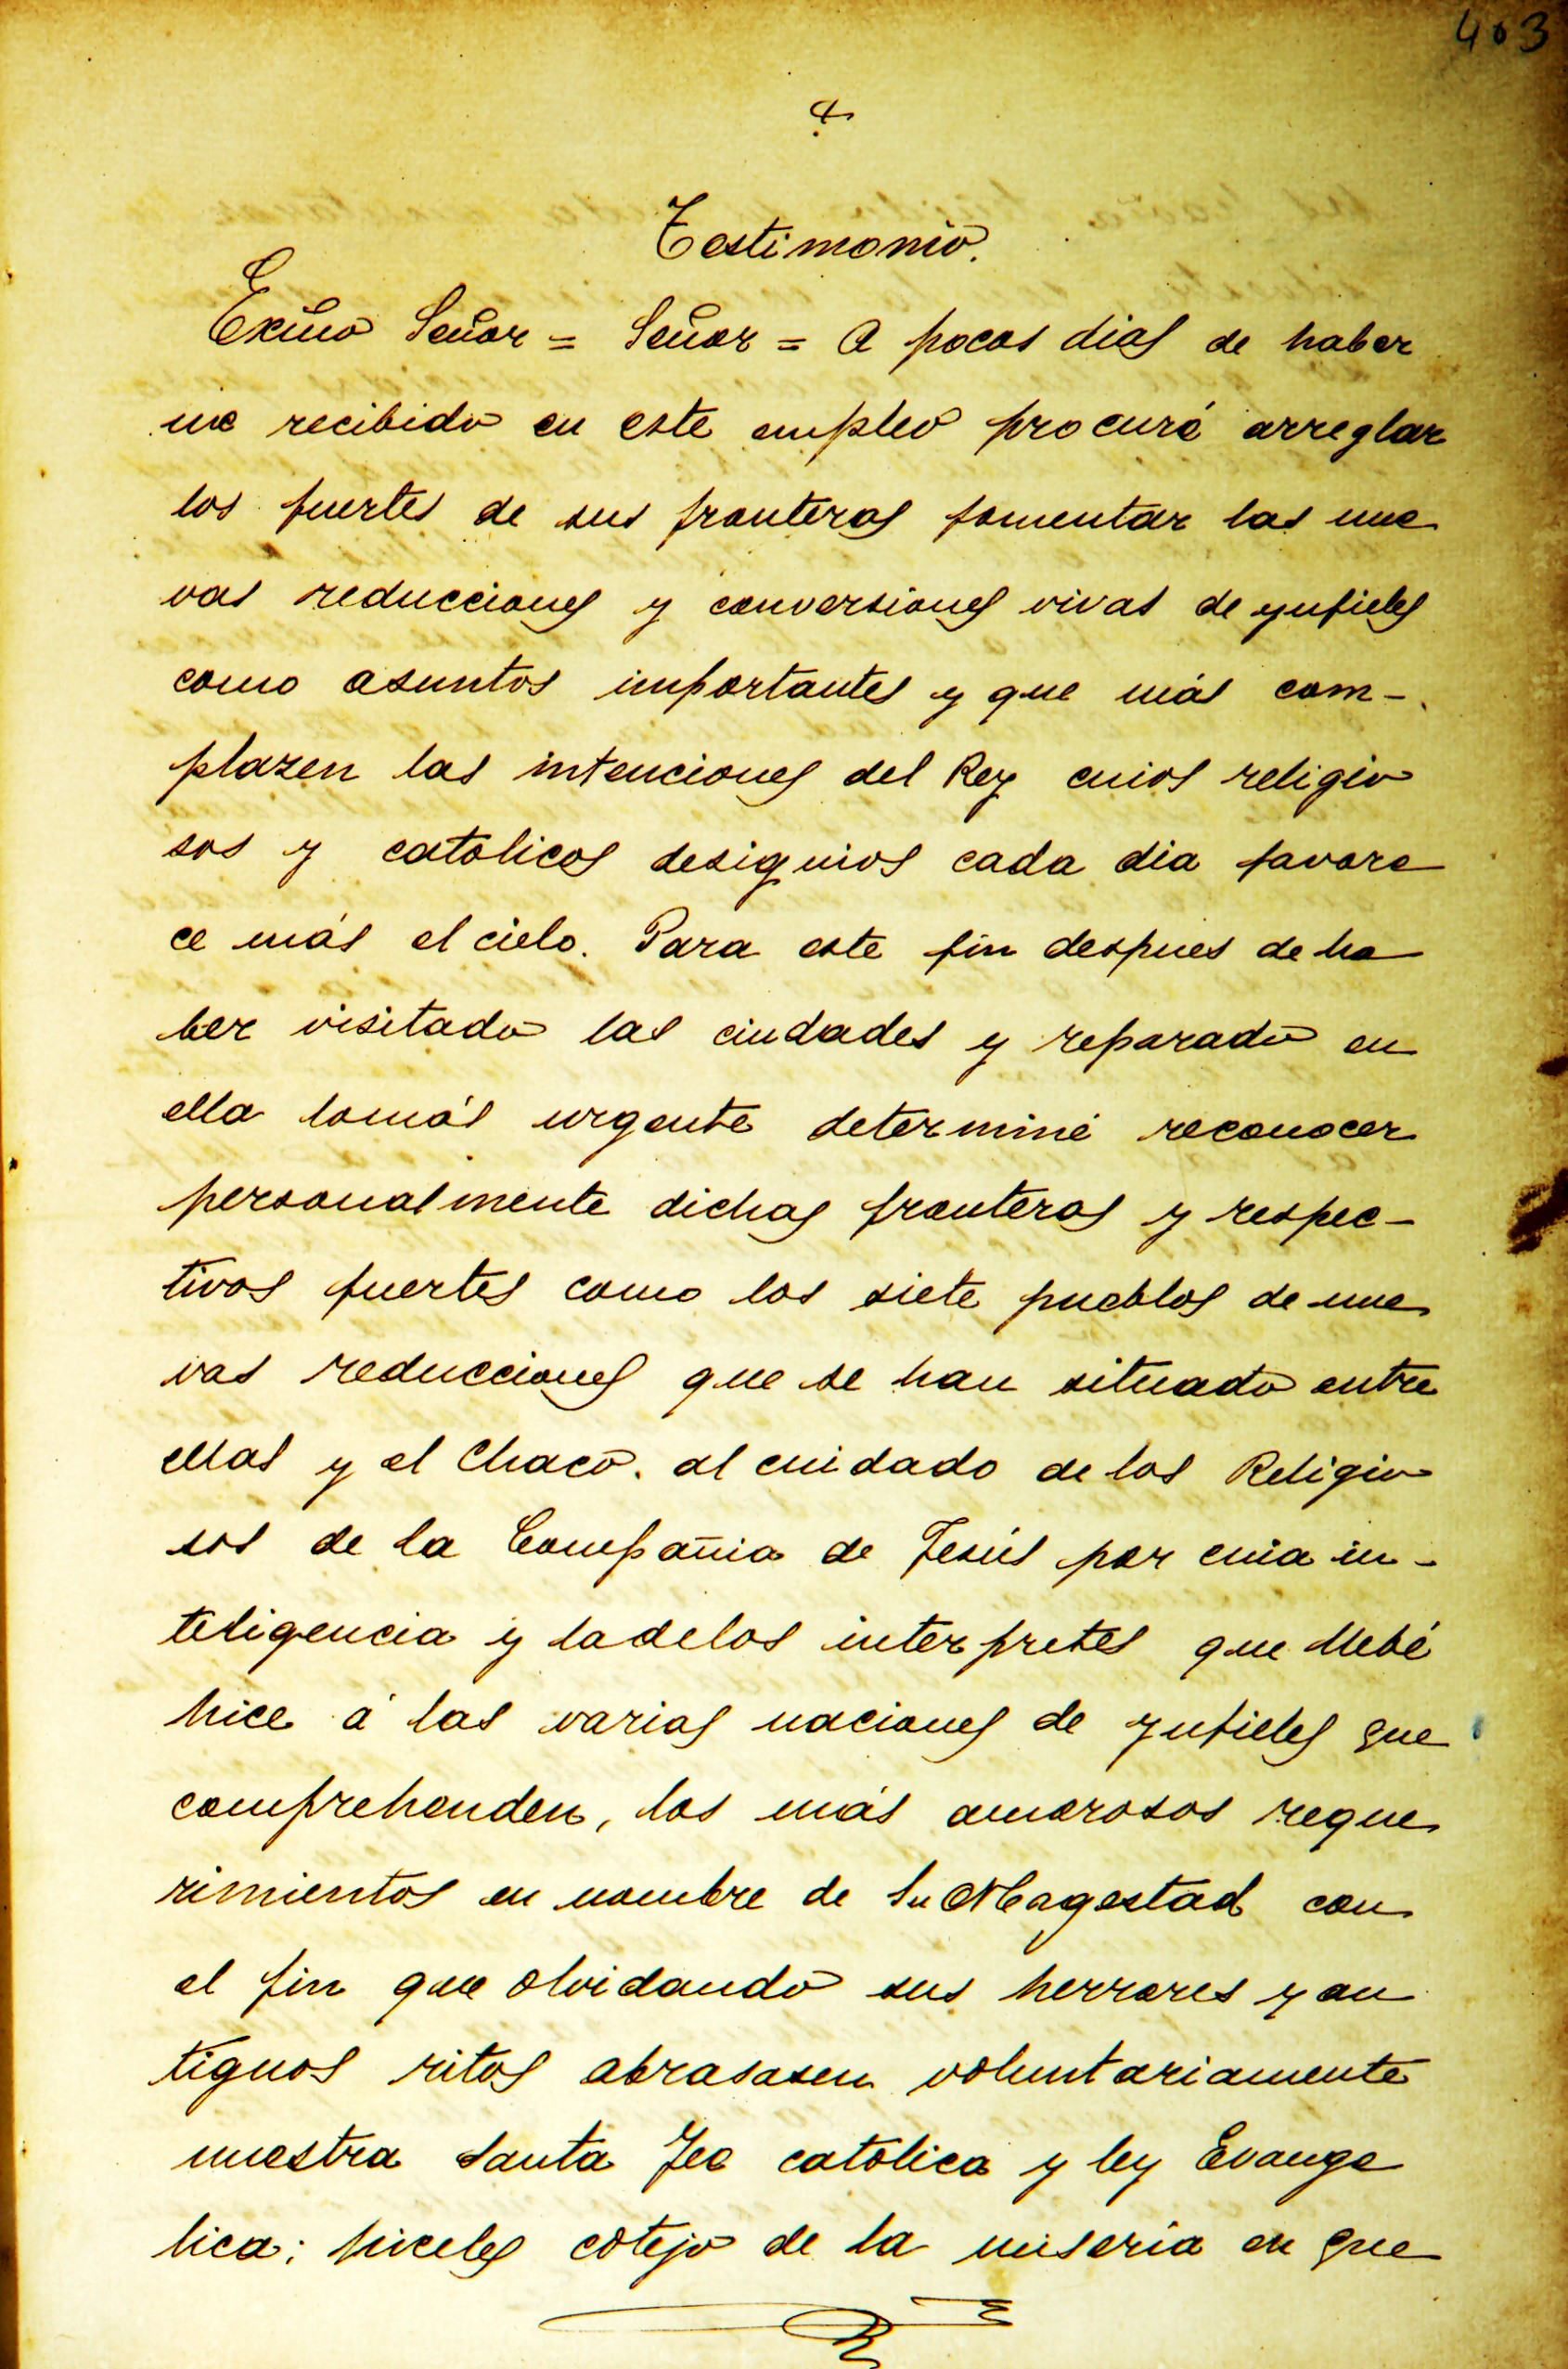 403
Testimonio.
Exmo Señor = Señor = A pocos dias de haber
me recibido en este empleo procuré arreglar
los fuertes de sus fronteras fomentar las nue
vas reducciones y conversiones vivas de ynfieles
como asuntos importantes y que más com-
plazen las intenciones del Rey cuios religio
sos y catolicos designios cada dia favore
ce más el cielo. Para este fin despues de ha
ber visitado las ciudades y reparado en
ella lomás urgente determiné reconocer
personalmente dichas fronteras y respec-
tivos fuertes como los siete pueblos de nue
vas reducciones que se han situado entre
ellas y el Chaco. al cuidado de los Religio
sos de la Compañia de Jesús por cuia in-
teligencia y ladelos interpretes que llebé
hice á las varias naciones de ynfieles que
comprehenden, los más amorosos reque
rimientos en nombre de Su Magestad con
el fin que olvidando sus herrores y an
tiguos ritos abrasasen voluntariamente
nuestra Santa Fee catolica y ley Evange
lica; hiceles cotejo de la miseria en que